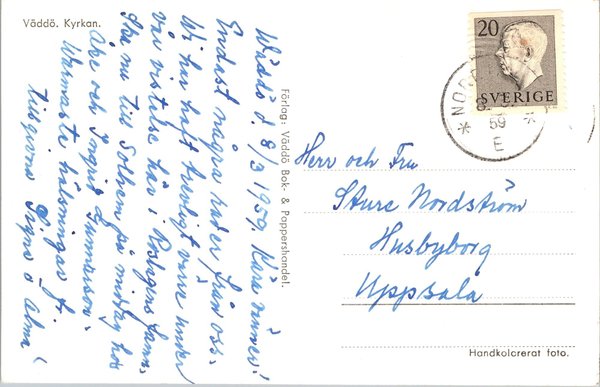 Väddö. Kyrkan.
Wäddö d. 8/3 1959. Kära vänner!
Endast några rader från oss.
Vi har haft trevligt väre under
vår vistelse här i Roslagens famn.
Ska nu till Solhem på middag hos
Åke och Ingrid Gunnarson.
Varmaste hälsningar fr.
tillgivna Signe o Alma!
Förlag: Väddö Bok- & Pappershandel.
20
SVERIGE
59
E
Herr och Fru
Sture Nordström
Husbyborg
Uppsala
Handkolorerat foto.